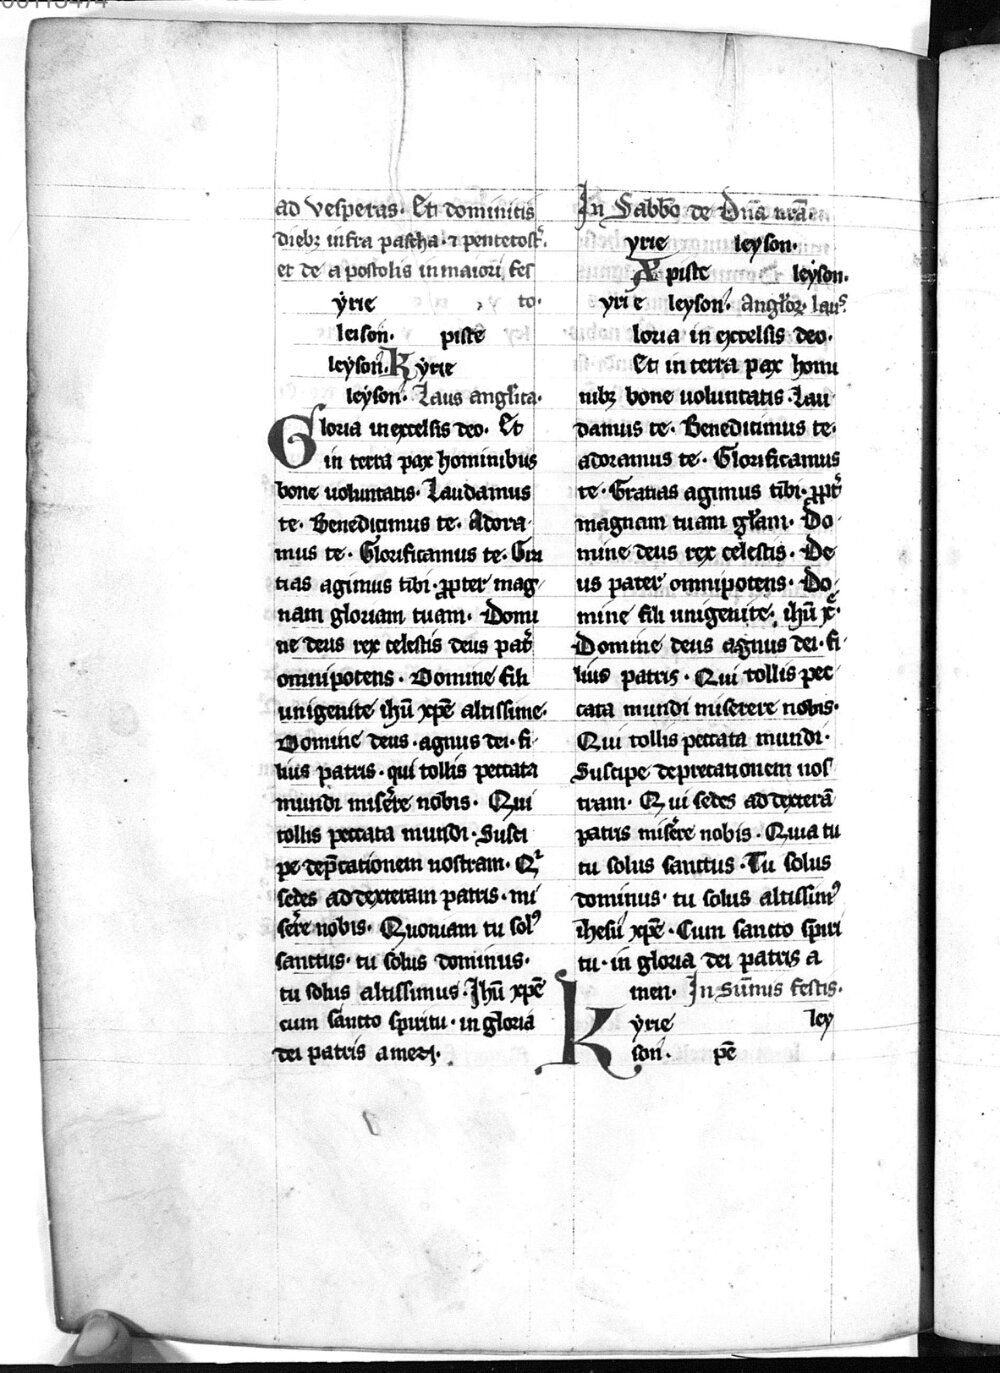 ad vesperas. Et dominicis
diebꝫ infra pascha. ⁊ pentecost̾.
et de apostolis in maiori fes
ẏrie to.
leison. piste
leyson. Kyrie
leyson. Laus anglica.
Gloria in excelsis deo. Et
in terra pax hominibus
bone uoluntatis. Laudamus
te. Benedicimus te. Adora
mus te. Glorificamus te. Gra
tias agimus tibi. ꝓpter mag
nam gloriam tuam. Domi
ne deus rex celestis deus pat̾
omnipotens. Domine fili
unigenite ihū xp̄e altissime.
Domine deus. agnus dei. fi
lius patris. qui tollis peccata
mundi mise̾re nobis. Qui
tollis peccata mundi. Susci
pe dep̄cationem nostram. Qͥ
sedes ad dexteram patris. mi
se̾re nobis. Quoniam tu solꝰ
sanctus. tu solus dominus.
tu solus altissimus. Ihū xp̄e
cum sancto spiritu. in gloria
dei patris amen.
In Sabb̄o de Dn̄a nr̄a.
yrie leyson.
Xpiste leyson.
yrie leyson. Anglor̄. laus.
loria in excelsis deo.
Et in terra pax homi
nibꝫ bone uoluntatis. Lau
damus te. Benedicimus te.
adoramus te. Glorificamus
te. Gratias agimus tibi. ꝓpt̾
magnam tuam gl̄am. Do
mine deus rex celestis. De
us pater omnipotens. Do
mine fili unigenite. ihū xp̄e.
Domine deus agnus dei. fi
lius patris. Qui tollis pec
cata mundi miserere nobis.
Qui tollis peccata mundi.
Suscipe deprecationem nos
tram. Qui sedes ad dexterā
patris mise̾re nobis. Quia tu
tu solus sanctus. Tu solus
dominus. tu solus altissimꝰ
ihesu xp̄e. Cum sancto spiri
tu. in gloria dei patris a
men. In Sūmis festis.
Kyrie ley
son. p̄e